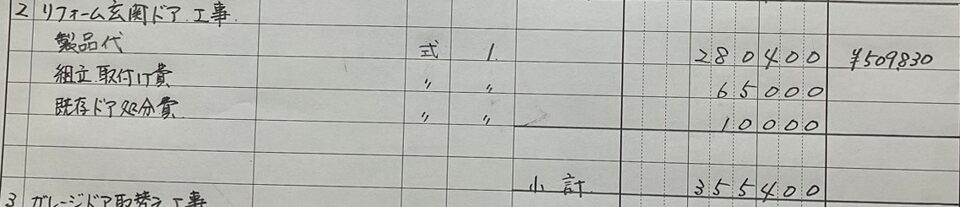 2 リフォーム玄関ドア工事
製品代 式 1. 280400 ¥509,830
組立取付け費 〃 〃 65000
既存ドア処分費 〃 〃 10000
小計 355400
3 ガレージドア取替え工事